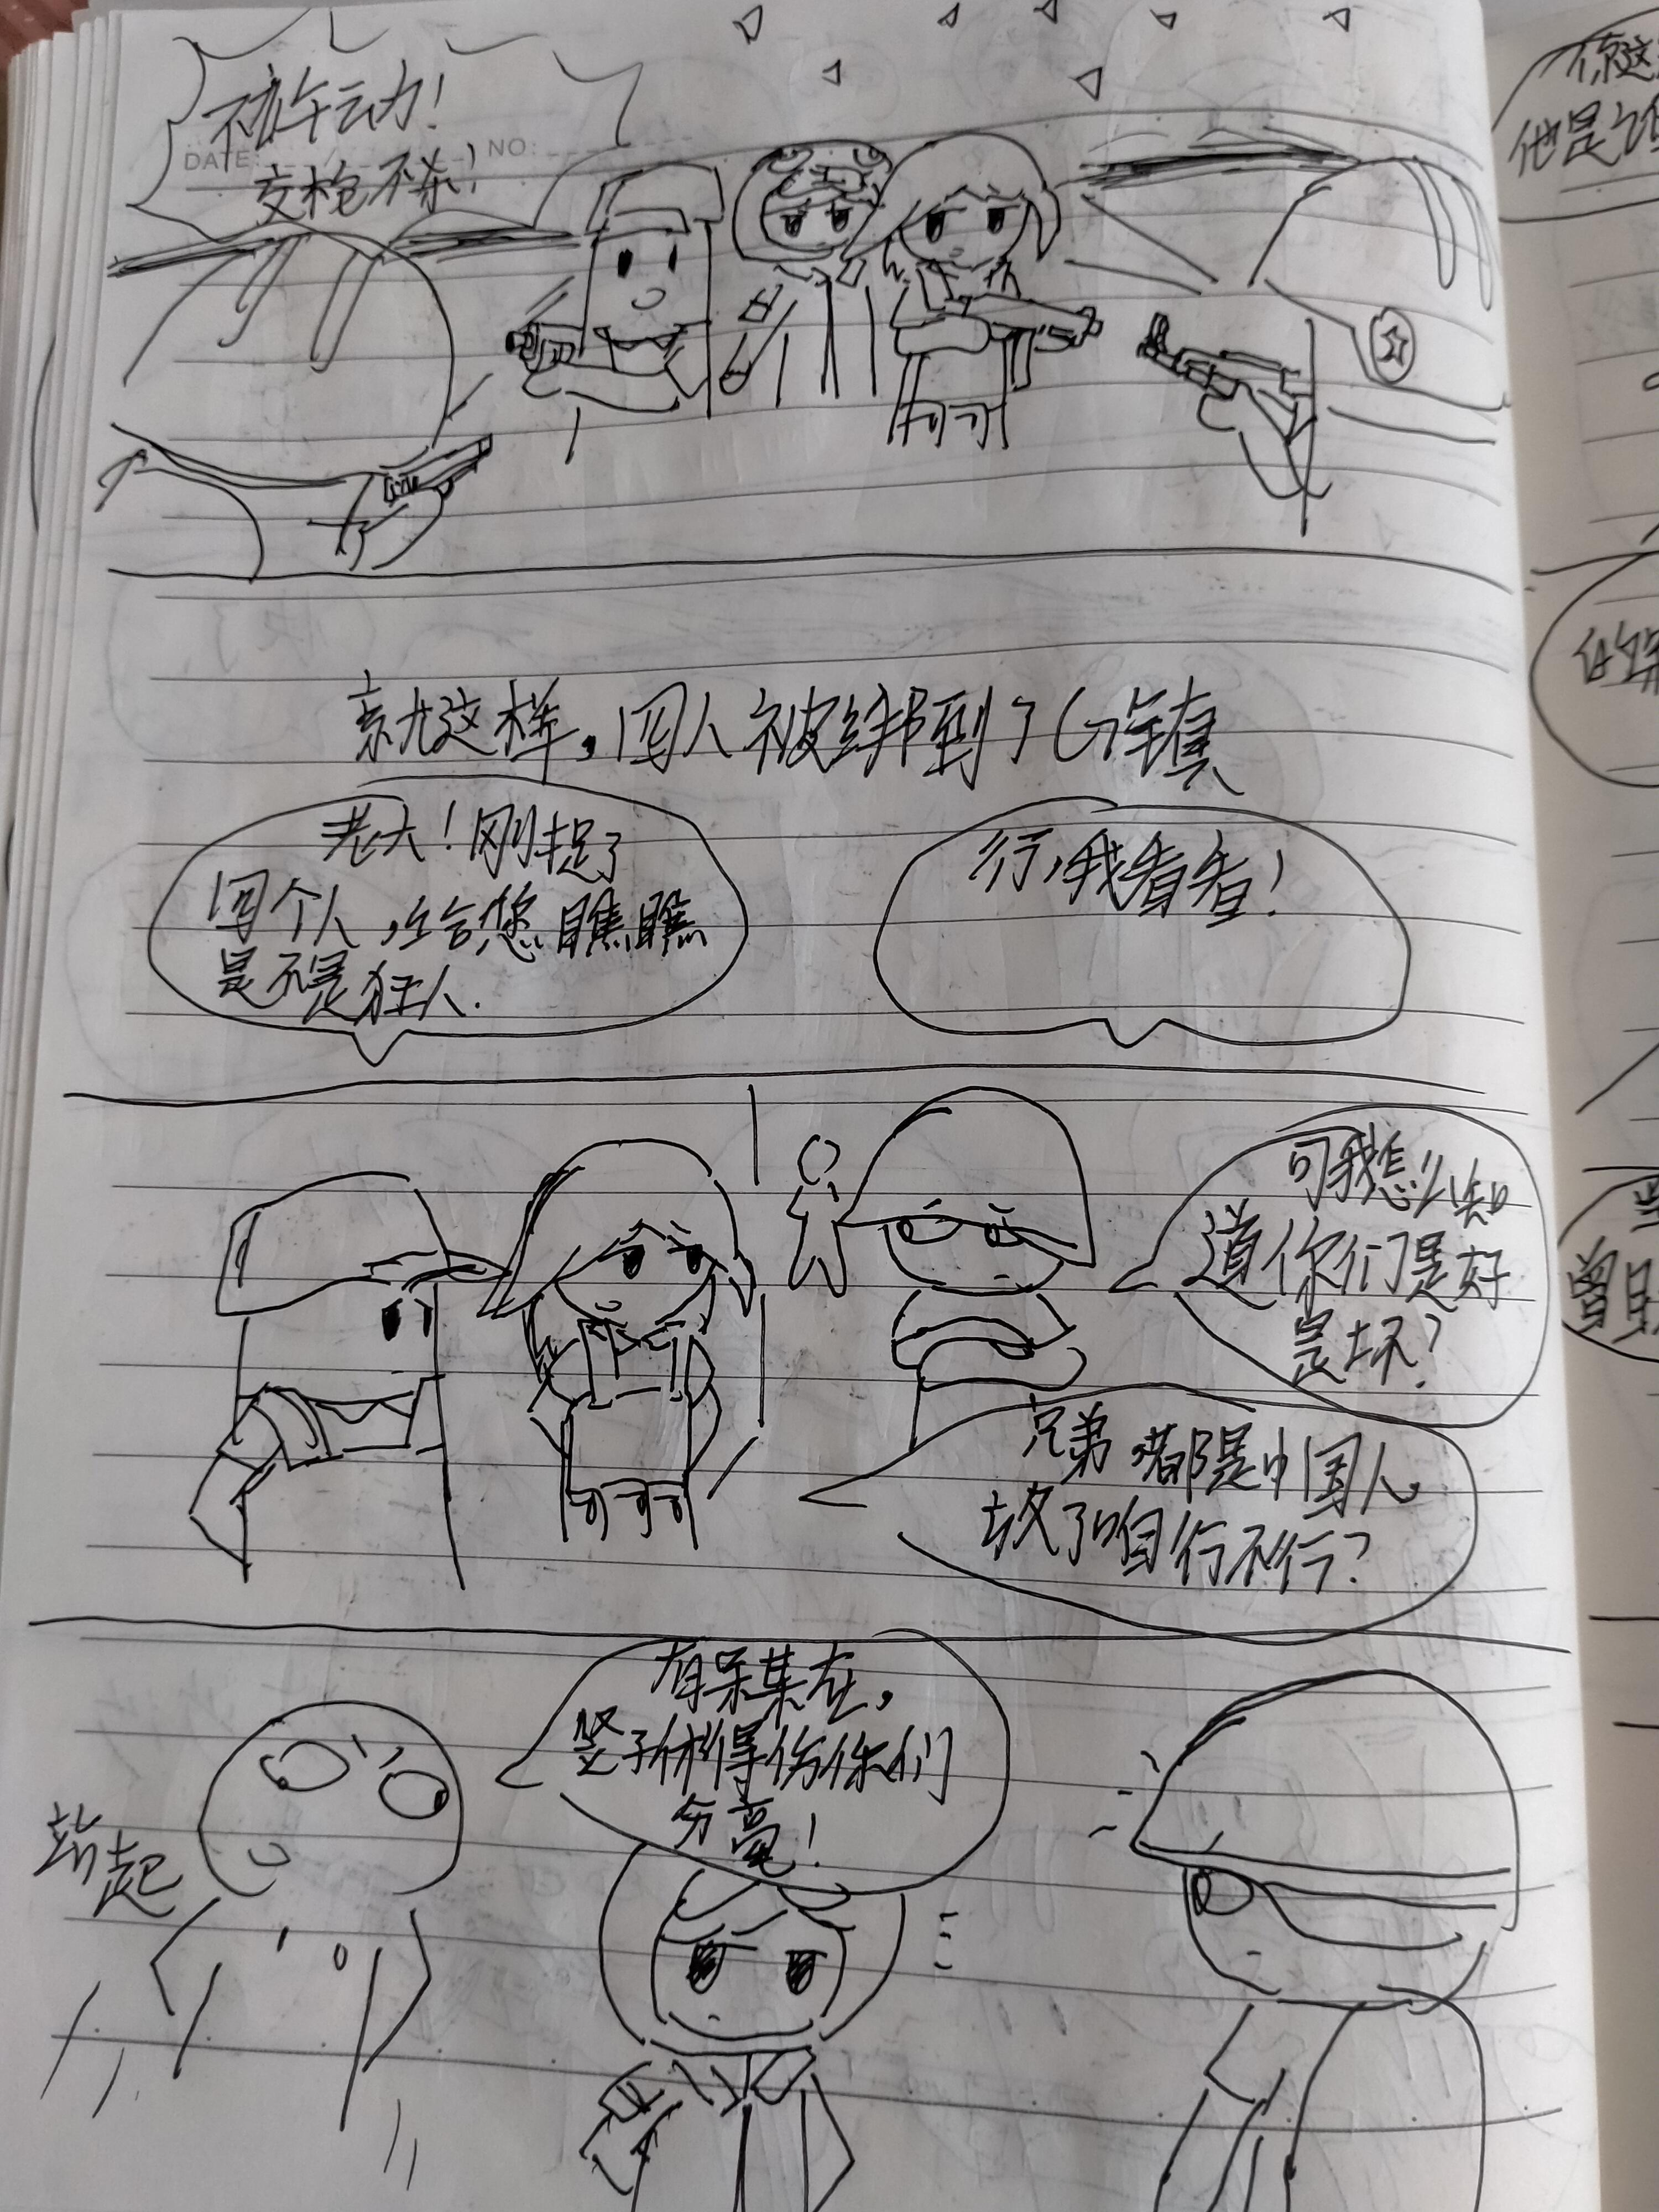 不许动!
DATE: NO:
交枪不杀!
就这样,四人被绑到了G镇
老大!刚捉了
四个人,给您瞧瞧
是不是狂人.
行,我看看!
可我怎么知
道你们是好
是坏?
兄弟 咱都是中国人,
放了咱行不行?
有呆某在,
竖子休得伤你们
分毫!
站起
你这
他是
曾